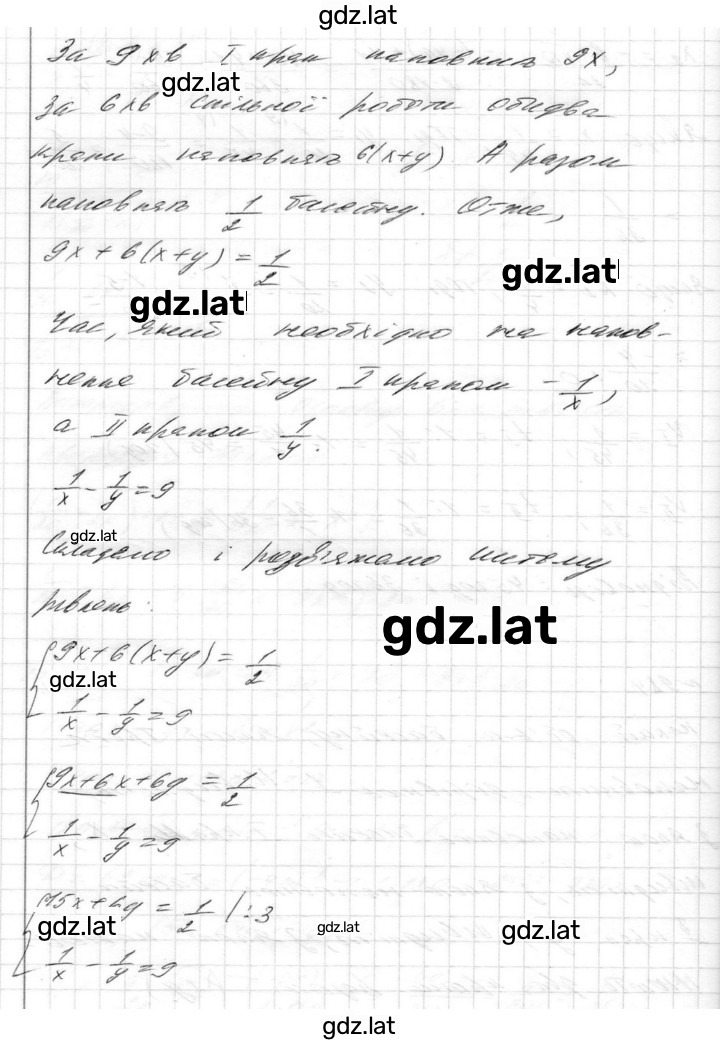 gdz.lat
За 9 хв I кран наповнить 9x,
gdz.lat
за 6 хв спільної роботи обидва
крани наповнять 6(x+y). А разом
наповнять 1/2 басейну. Отже,
9x + 6(x+y) = 1/2
gdz.lat
gdz.lat
Час, який необхідно на напов-
нення басейну I краном - 1/x,
а II краном 1/y.
1/x - 1/y = 9
gdz.lat
Складемо і розв'яжемо систему
рівнянь:
gdz.lat
{ 9x + 6(x+y) = 1/2
gdz.lat
1/x - 1/y = 9
{ 9x + 6x + 6y = 1/2
1/x - 1/y = 9
{ 15x + 6y = 1/2 | : 3
gdz.lat gdz.lat gdz.lat
1/x - 1/y = 9
gdz.lat